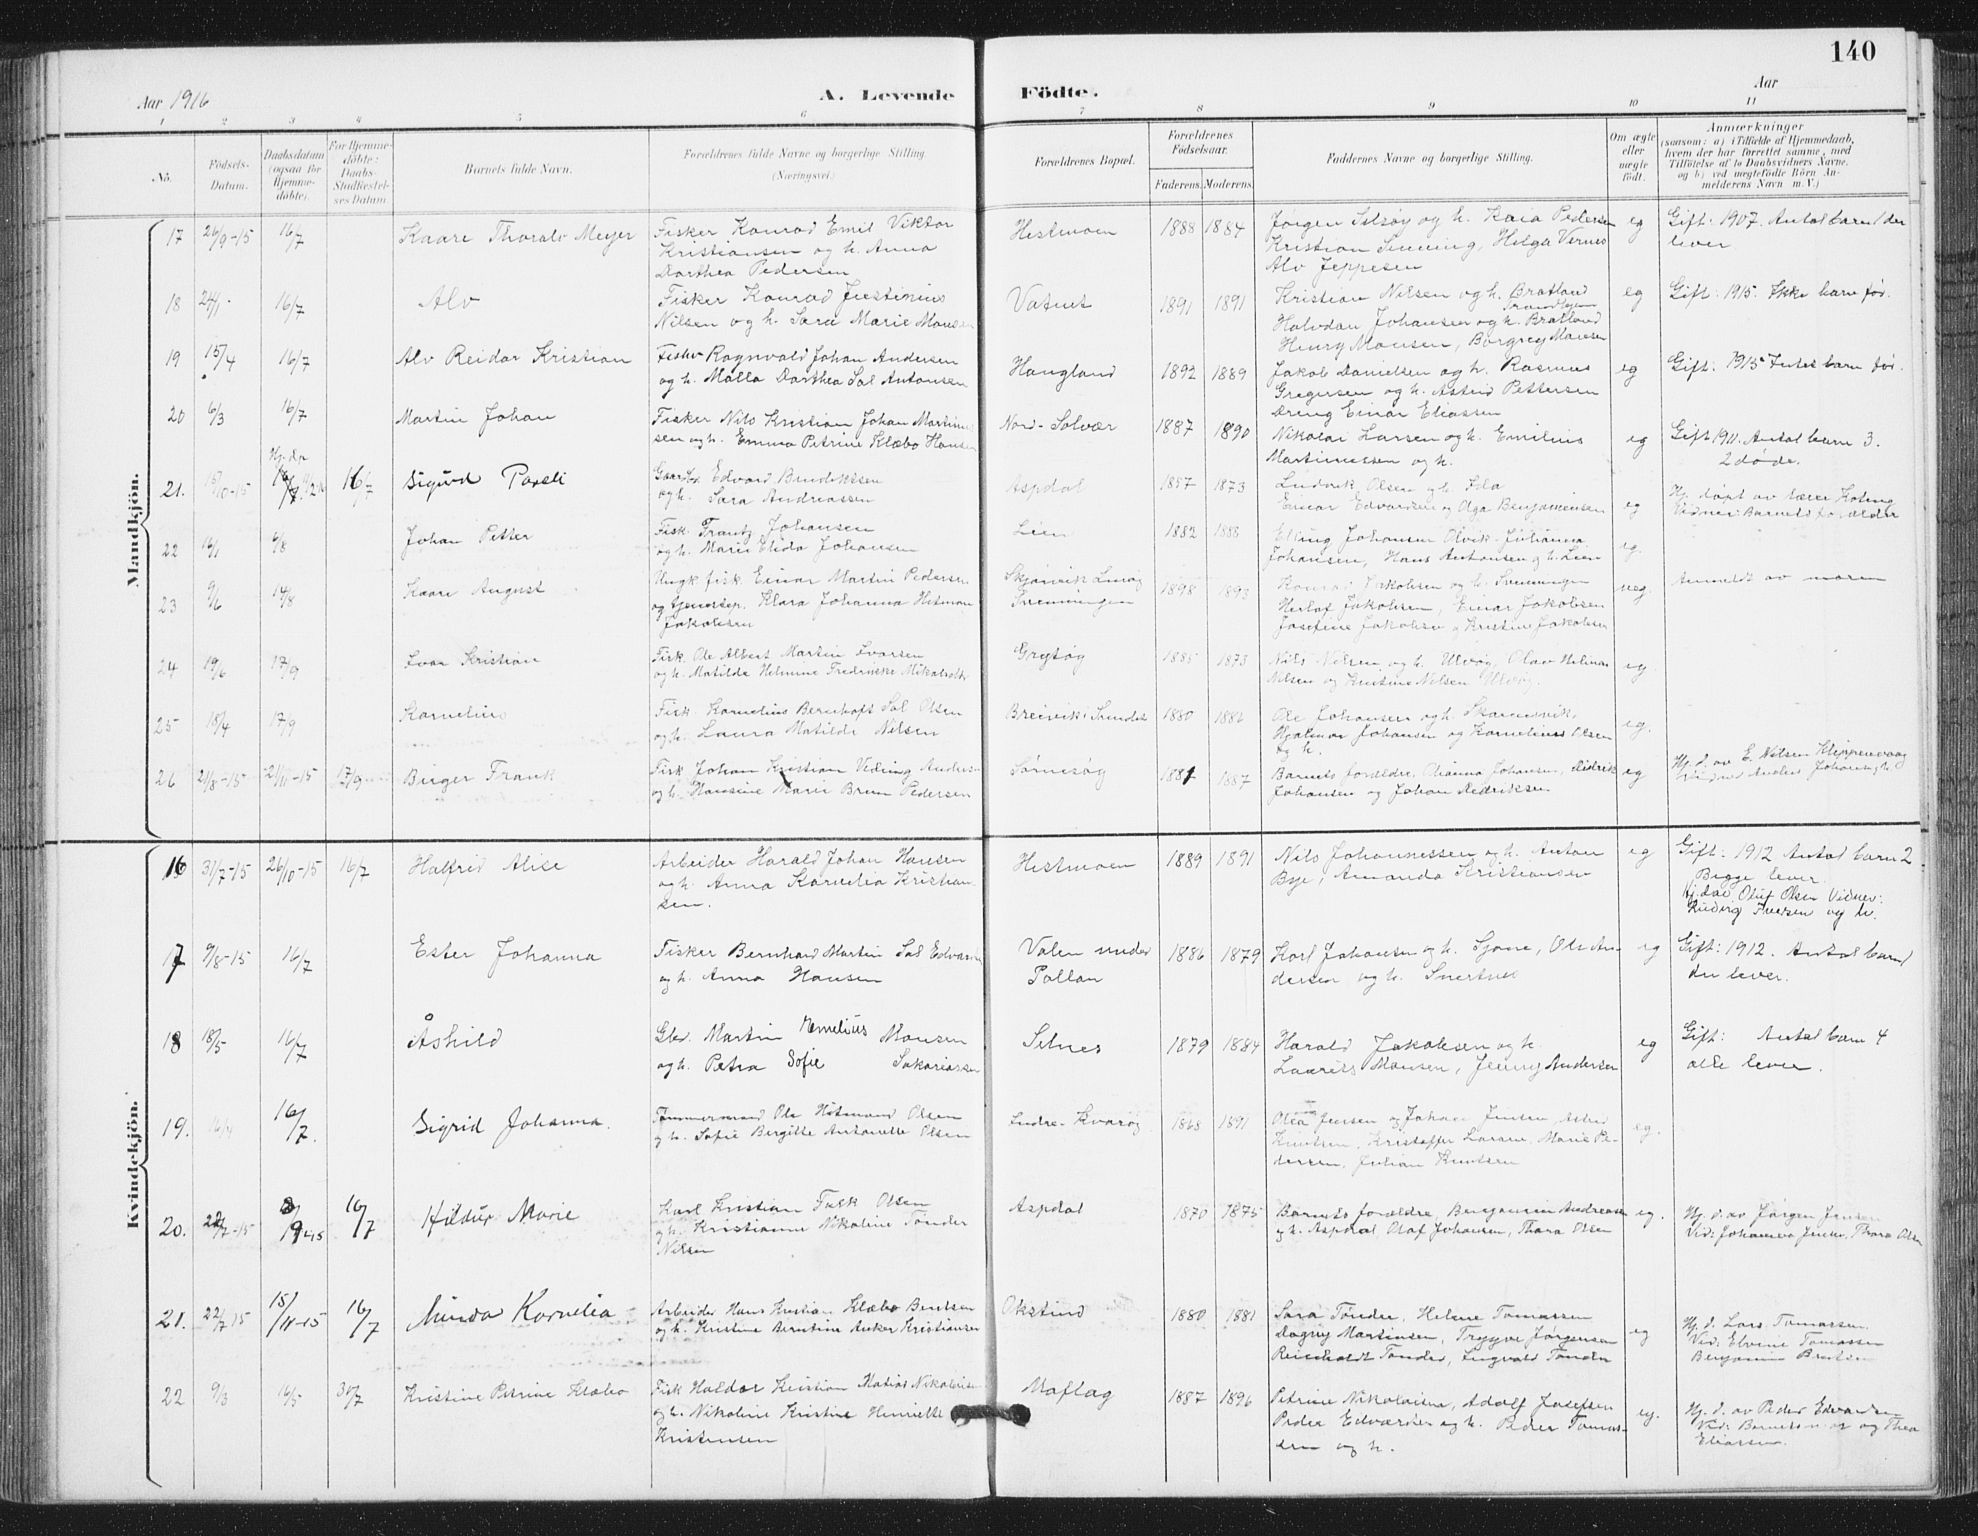 140
Aar 1916
A. Levende
Födte.
Aar
1 2 3 4 5 6 7 8 9 10 11
No.
Födsels-Datum.
Daabsdatum (ogsaa for Hjemmedöbte).
For Hjemmedöbte: Daabs-Stadfæstelses Datum.
Barnets fulde Navn.
Forældrenes fulde Navne og borgerlige Stilling. (Næringsvei.)
Forældrenes Bopæl.
Forældrenes Födselsaar.
Faderens. Moderens.
Faddernes Navne og borgerlige Stilling.
Om ægte eller uægte födt.
Anmærkninger
(saasom: a) i Tilfælde af Hjemmedaab, hvem der har forrettet samme, med Tilföielse af to Daabsvidners Navne. og b) ved uægtefödte Börn Anmelderens Navn m. V.)
Mandkjön.
17 26/9-15 16/7 Kaare Thoralv Meyer Fisker Konrad Emil Viktor Hestmoen 1888 1884 Jørgen Selsøy og h. Kaia Pedersen eg Gift: 1907. Antal barn 1 der
Kristiansen og h. Anna Kristian Svenning, Helga Vernes lever
Dorthea Pedersen Alv Jeppesen
18 24/1 16/7 Alv Fisker Konrad Justinius Vatnet 1891 1891 Kristian Nilsen og h. Bratland eg Gift: 1915. Ikke barn før.
Nilsen og h. Sara Marie Monsen Halvdan Johansen og h. Bratland
Henry Monsen, Borgny Monsen
19 15/4 16/7 Alv Reidar Kristian Fisker Ragnvald Johan Andersen Haugland 1892 1889 Jakob Danielsen og h. Rasmus eg Gift: 1915 Intet barn før.
og h. Malla Dorthea Sal Antonsen Gregersen og h. Astrid Pettersen
Dreng Einar Eliassen
20 6/3 16/7 Martin Johan Fisker Nils Kristian Johan Martinus Nord-Solvær 1887 1890 Nikolai Larsen og h. Emilius eg Gift 1911. Antal barn 3.
sen og h. Emma Petrine Klæbo Hansen Martinussen og h. 2 døde.
Hj. dp
21. 15/10-15 16/7 Sigurd Pareli Edvard Bendiktsen Aspdal 1857 1873 Ludvik Olsen og h. Ida eg Hj. døpt av lærer
og h. Sara Andreassen Einar Edvardsen og Olga Benjaminsen Vidner: Barnets forældre
22 6/8 Johan Petter Fisk. Frantz Johansen Lien 1882 1888 Elling Johansen Olvik Julianna eg.
og h. Marie Elida Johansen Johansen, Hans Antonsen og h. Lien
23 9/6 14/8 Kaare August Ungk. fisk. Einar Martin Pedersen 1898 1893 Konrad Jakobsen og h. Svenningen ueg. Anmeldt av moren
og Klara Johanna Hitman Svenningen Herlof Jakobsen, Einar Jakobsen
Jakobsen Josefine Jakobsen og Kristine Jakobsen
24 19/6 17/9 Ivar Kristian Fisk. Ole Albert Martin Ivarsen Grytøy 1885 1873 Nils Nilsen og h. Ulvøy, Olav eg.
og h. Matilde Helmine Fredrikke Nilsen og Kristine Nilsen Ulvøy.
25 18/4 17/9 Kornelius Fisk. Kornelius Bernhoft Sal Olsen Breivik i Sundet 1880 1886 Ole Johansen og h. eg.
og h. Laura Matilde Nilsen Hjalmar Johansen og Kornelius Olsen
og h.
26 21/8-15 21/11-15 17/9 Birger Frank Fisk Johan Kristian Anders Sørnesøy 1881 1887 Barnets forældre, Olianna Johansen, Didrik eg Hj. d. av E. Nilsen Klippenvaag
og h. Hansine Marie Bruun Pedersen Johansen og Johan Didriksen Anders Johansen
Kvindekjön.
16 31/7-15 26/10-15 16/7 Halfrid Alise Arbeider Harald Johan Hansen Hestmoen 1889 1891 Nils Johannessen og h. Anton eg Gift: 1912 Antal barn 2
og h. Anna Kornelia Kristian- Bye, Amanda Kristiansen Begge lever.
sen. Hj. d. av Oluf Olsen Vidner:
Ludvig Iversen og h.
17 9/8-15 16/7 Ester Johanna Fisker Bernhard Martin Sal Edvards Valen under 1886 1879 Karl Johansen og h. Sjona, Ole An- eg Gift: 1912. Antal barn 1
og h. Anna Hansen Pollan dersen og h. du lever.
18 18/5 16/7 Åshild Gbr. Martin Hemelius Monsen Selnes 1879 1884 Harald Jakobsen og h. eg Gift: Antal barn 4
og h. Petra Sofie Sakariassen Laurits Monsen, Jenny Andersen alle lever.
19. 16/4 16/7. Sigrid Johanna. Tømmermand Ole Hitmand Olsen Indre-Kvarøy 1868 1891 Olea Jensen og Johan Jensen, Astrid eg.
og h. Sofie Birgitte Antonette Olsen Knutsen, Kristoffer Larsen, Marie Pe-
dersen, Julian Knutsen
20. 22/7-15 16/7 Hildur Marie Karl Kristian Falk Olsen Aspdal 1870 1875 Barnets forældre, Benjamin Andreassen eg. Hj. d. av Jørgen Jensen
og h. Kristianne Nikoline Tønder og h. Aspdal, Olaf Johansen, Thora Olsen Vid: Johanna Jensen, Thora Olsen
Nilsen
21. 22/7-15 15/11-15 16/7 Minda Kornelia Arbeider Hans Kristian Klæbo Bentsen Okstind 1880 1881 Sara Tønder, Helene Tomassen eg Hj. d. Lars Tomassen.
og h. Kristine Berntine Anker Kristiansen Dagny Martinsen, Trygve Jørgensen Vid: Elvine Tomassen
Reinholdt Tønder, Ingvald Tønder Benjamin Bentsen
22 9/3 16/5 30/7 Kristine Petrine Klæbo Fisk Haldor Kristian Matias Nikolaisen Moflag 1887 1896 Petrine Nikolaisen, Adolf Josefsen eg. Hj. d. av Peder Edvardsen
og h. Nikoline Kristine Henriette Peder Edvardsen og h. Peder Tomas- Vid: Barnets og Thea
Kristensen sen og h. Eliassen